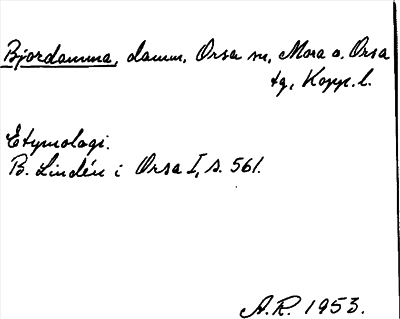 Bjordamma, damm, Orsa sn, Mora o. Orsa
tg, Kopp. l.
Etymologi.
B. Lindén i Orsa I, s. 561.
A.R. 1953.